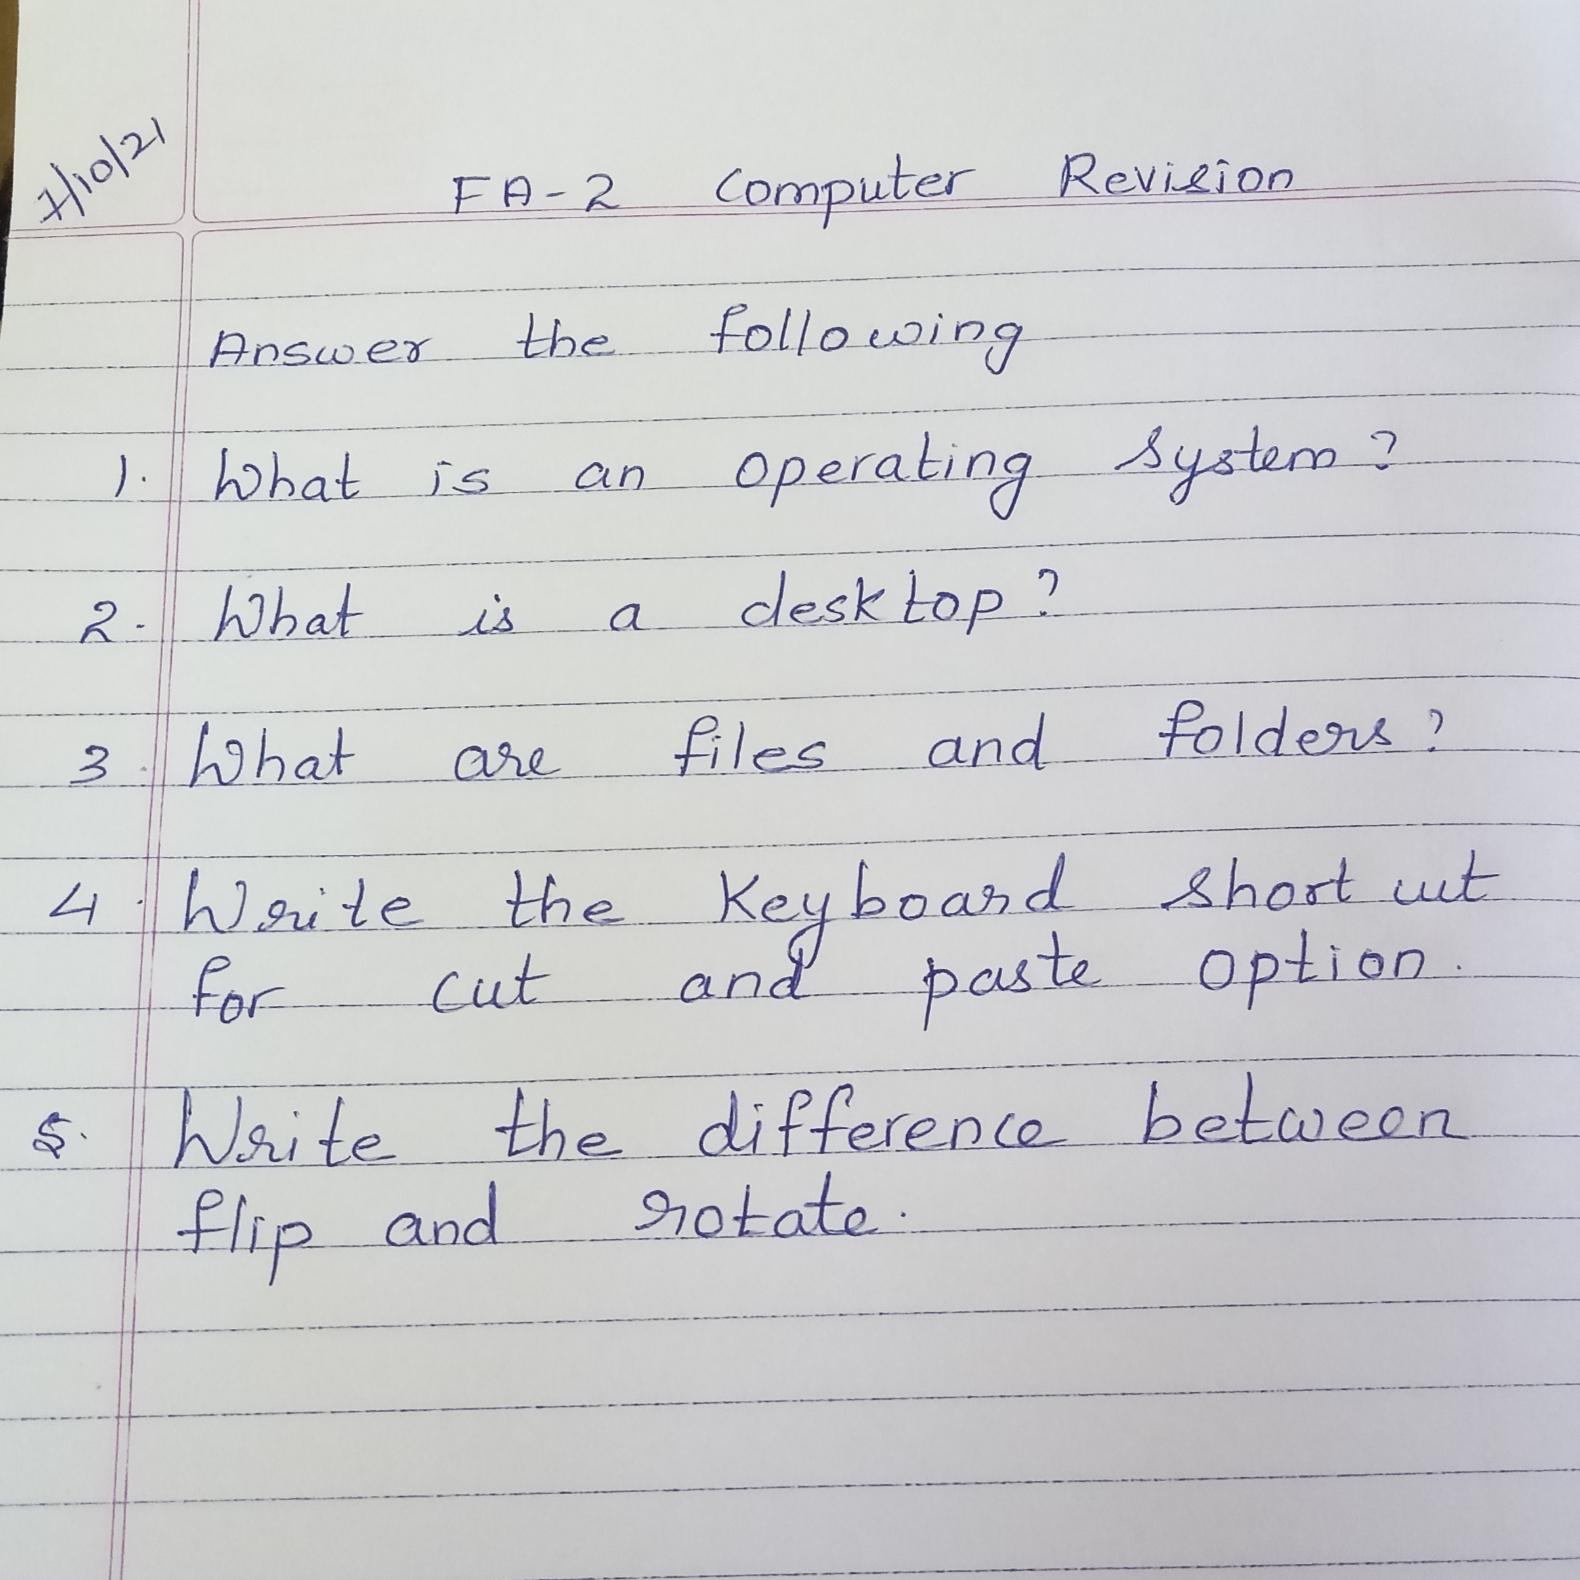 7/10/21
FA-2 Computer Revision
Answer the following
1. What is an operating system?
2. What is a desktop?
3. What are files and folders?
4. Write the Keyboard short cut
for cut and paste option.
5. Write the difference between
flip and rotate.